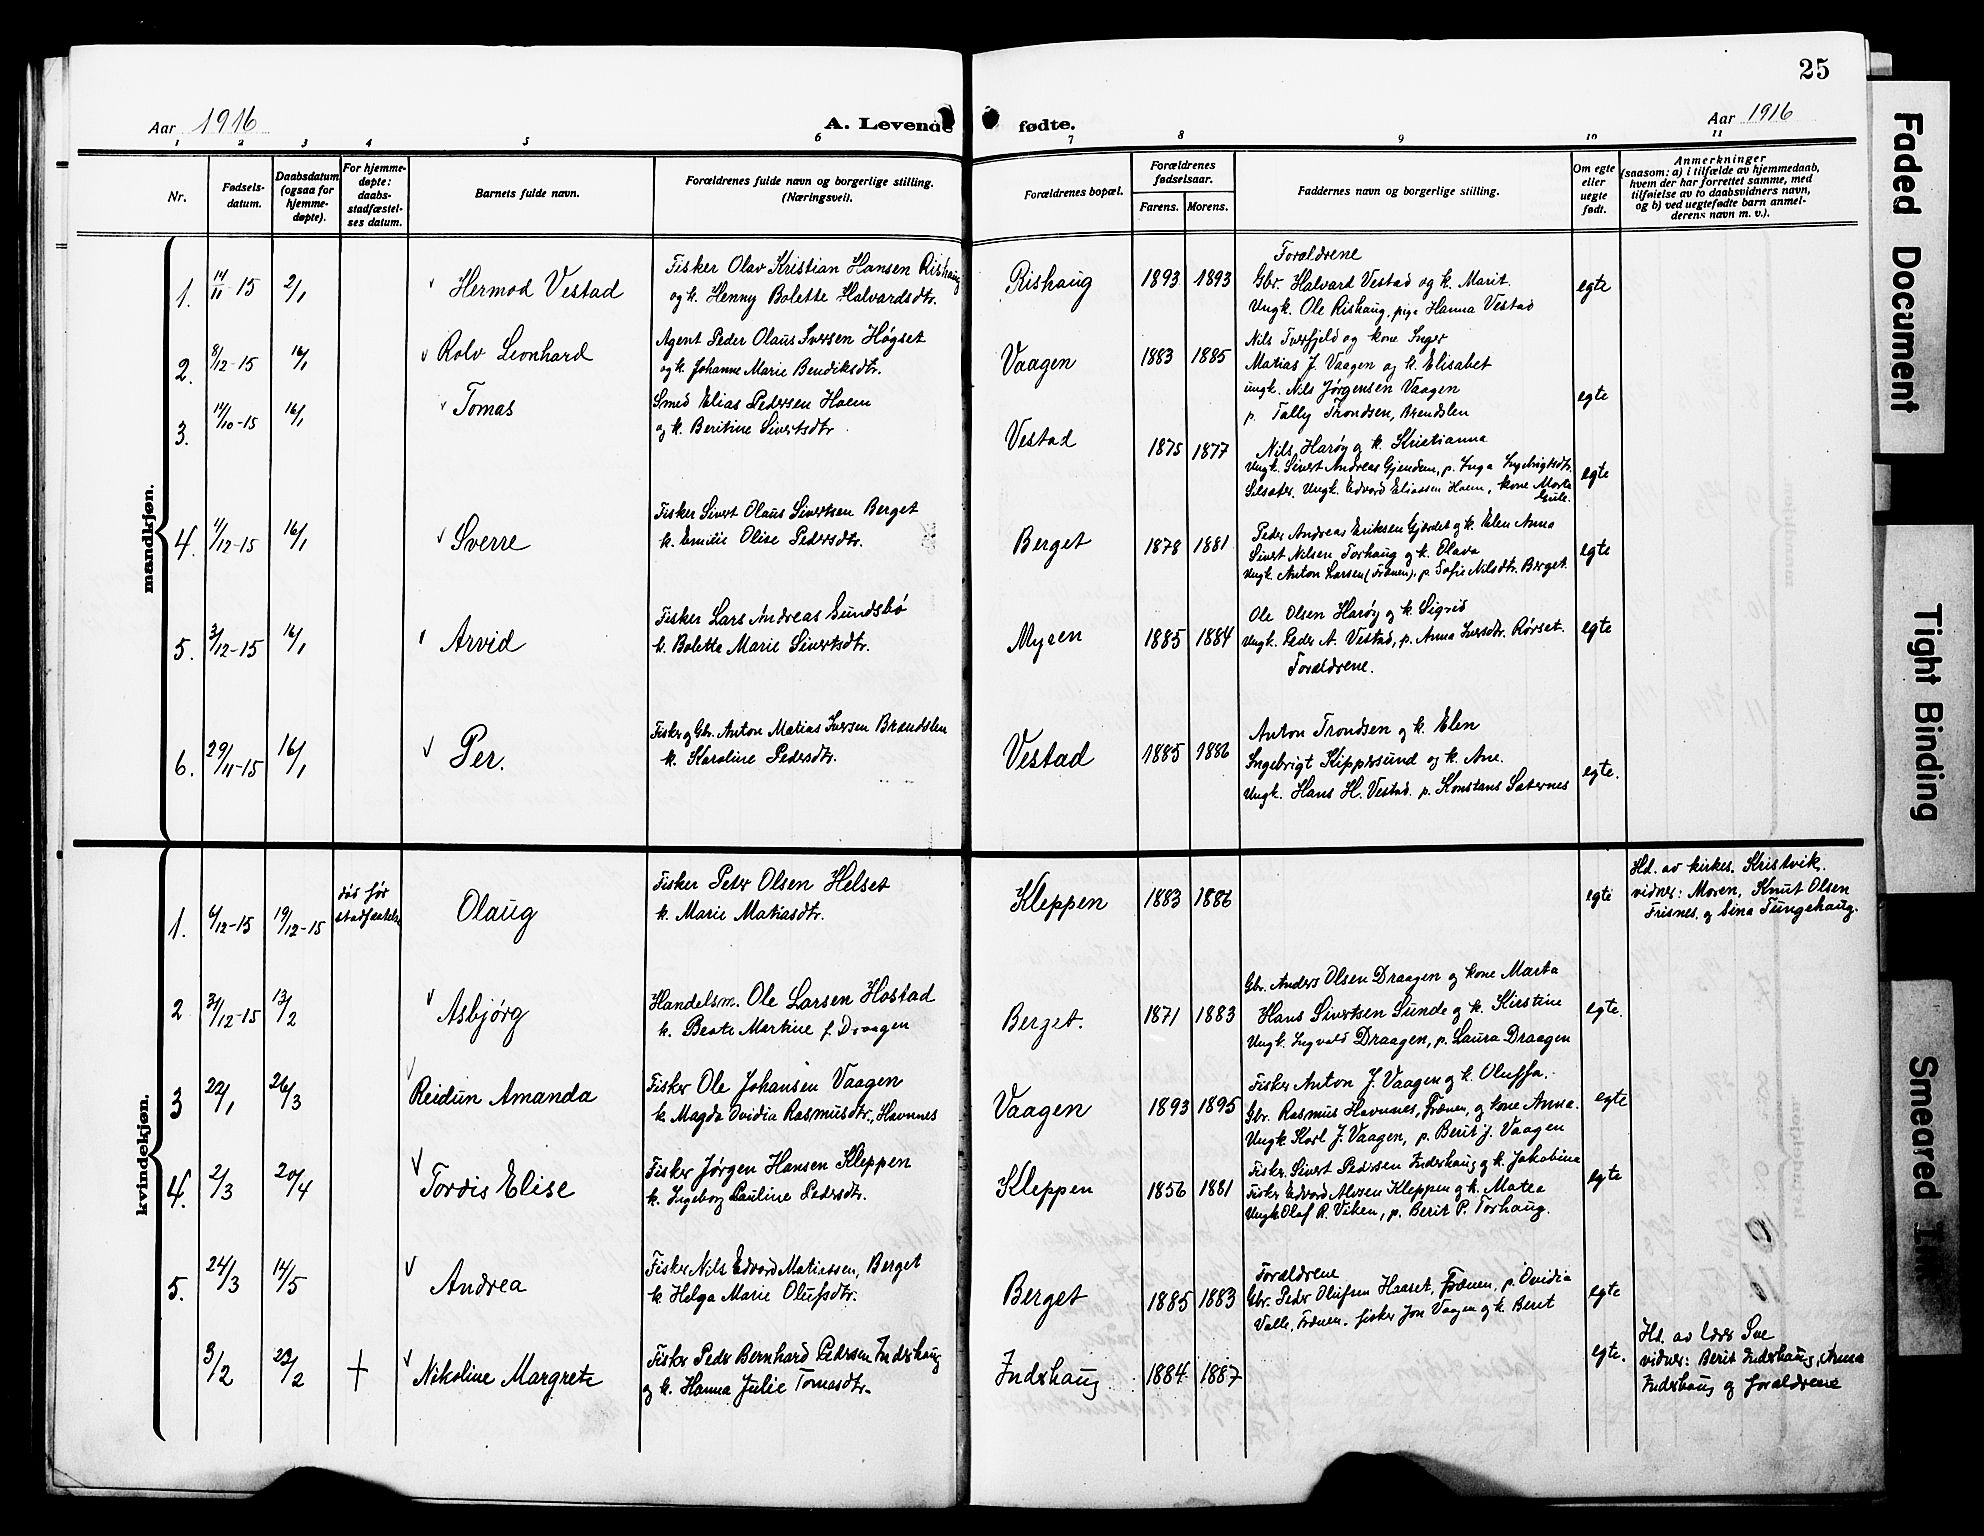 25
Aar 1916
A. Levende fødte.
Aar 1916
1 2 3 4 5 6 7 8 9 10 11
Nr.
Fødsels-
datum.
Daabsdatum
(ogsaa for
hjemme-
døpte).
For hjemme-
døpte:
daabs-
stadfæstel-
ses datum.
Barnets fulde navn.
Forældrenes fulde navn og borgerlige stilling.
(Næringsvei).
Forældrenes bopæl.
Forældrenes
fødselsaar.
Farens. Morens.
Faddernes navn og borgerlige stilling.
Om egte
eller
uegte
født.
Anmerkninger
(saasom: a) i tilfælde av hjemmedaab,
hvem der har forrettet samme, med
tilføielse av to daabsvidners navn,
og b) ved uegtefødte barn anmel-
derens navn m. v.).
mandkjøn.
1. 14/11-15 2/1 Hermod Vestad
Fisker Olav Kristian Hansen Rishaug
og k. Henny Bolette Halvardsdtr.
Rishaug 1893 1893
Forældrene
Gbr. Halvard Vestad og k. Marit.
Ungk. Ole Rishaug, pige Hanna Vestad
egte
2. 8/12-15 16/1 Rolv Leonhard
Agent Peder Olaus Iversen Høgset
og k. Johanne Marie Bendiksdtr.
Vaagen 1883 1885
Nils Tverfjeld og kone Inger
Matias J. Vaagen og k. Elisabet
ungk. Nils Jørgensen Vaagen
p. Tally Trondsen, Arendslen
egte
3. 14/10-15 16/1 Tomas
Smed Elias Pedersen Haem
og k. Beritine Sivertsdtr.
Vestad 1875 1877
Nils Harøy og k. Kristianna
Ungk. Sivert Andreas Gjendem, p. Inga Ingebrigtsdtr.
Silsæter. Ungk. Edvard Eliassen Haem, kone Marta
Gule.
egte
4. 4/12-15 16/1 Sverre
Fisker Sivert Olaus Sivertsen Berget
k. Emilie Olise Pedersdtr.
Berget 1878 1881
Peder Andreas Eriksen Gjerdet og k. Elen Anna
Sivert Nilsen Torhaug og k. Olava
Ungk. Anton Larsen (Frænen), p. Sofie Nilsdtr. Berget.
egte
5. 3/12-15 16/1 Arvid
Fisker Lars Andreas Sundsbø
k. Bolette Marie Sivertsdtr.
Myren 1885 1884
Ole Olsen Harøy og k. Sigrid
Ungk. Peder A. Vestad, p. Anna Iversdtr. Rørset.
Forældrene.
egte
6. 29/11-15 16/1 Per.
Fisker og Gbr. Anton Matias Iversen Brendslen
k. Karoline Pedersdtr.
Vestad 1885 1886
Anton Trondsen og k. Elen
Ingebrigt Kippersund og k. Ane.
Ungk. Hans H. Vestad. p. Konstans Sæternes
egte.
kvindekjøn.
1. 6/12-15 19/12-15
død før
stadfæstelse
Olaug
Fisker Peder Olsen Helset
k. Marie Matiasdtr.
Kleppen 1883 1886
egte
Hd. av kirkes. Kristvik.
vidner: Moren, Knut Olsen
Frisnes, og Sina Tungehaug.
2 31/12-15 13/2 Asbjørg
Handelsm. Ole Larsen Hostad
k. Beate Martine f. Draagen
Berget. 1871 1883
Gbr. Anders Olsen Draagen og kone Marta
Hans Sivertsen Sunde og k. Kirstine
Ungk. Ingvald Draagen, p. Laura Draagen
egte.
3 22/1 26/3 Reidun Amanda
Fisker Ole Johansen Vaagen
k. Magda Ovidia Rasmusdtr, Havnnes
Vaagen 1893 1895
Fisker Anton J. Vaagen og k. Oluffa.
Gbr. Rasmus Havnnes, Frænen, og kone Anna.
Ungk. Karl J. Vaagen, p. Berit J. Vaagen
egte
4. 2/3 20/4 Tordis Elise
Fisker Jørgen Hansen Kleppen
k. Ingeborg Pauline Pedersdtr.
Kleppen 1856 1881
Fisker Sivert Pedersen Inderhaug og k. Jakobina
Fisker Edvard Alvsen Kleppen og k. Matea
Ungk. Olaf R. Viken, p. Berit P. Torhaug.
egte
5. 24/3 14/5 Andrea
Fisker Nils Edvard Matiassen, Berget
k. Helga Marie Olufsdtr.
Berget 1885 1883
Forældrene
Gbr. Peder Olufsen Haaset, Frænen, p. Ovidia
Valle, Frænen. fisker Jon Vaagen og k. Berit
egte
3/2 23/2 + Nikoline Margrete
Fisker Peder Bernhard Pedersen Inderhaug
og k. Hanna Julie Tomasdtr.
Inderhaug 1884 1887
egte.
Hd. av lærer Sve
vidner: Berit Inderhaug, Anna
Inderhaug og forældrene
Faded Document
Tight Binding
Smeared Ink